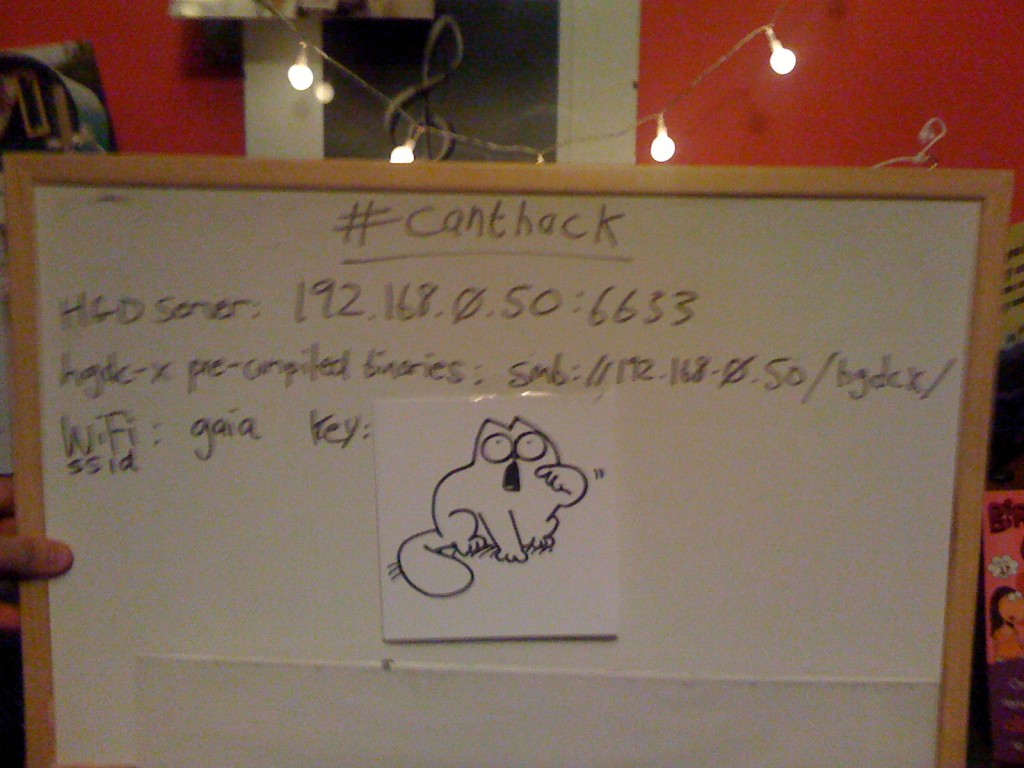 #canthack
H&D Server: 192.168.0.50:6633
hgdc-x pre-compiled binaries: smb://192.168.0.50/hgdcx/
WiFi: gaia key:
ssid